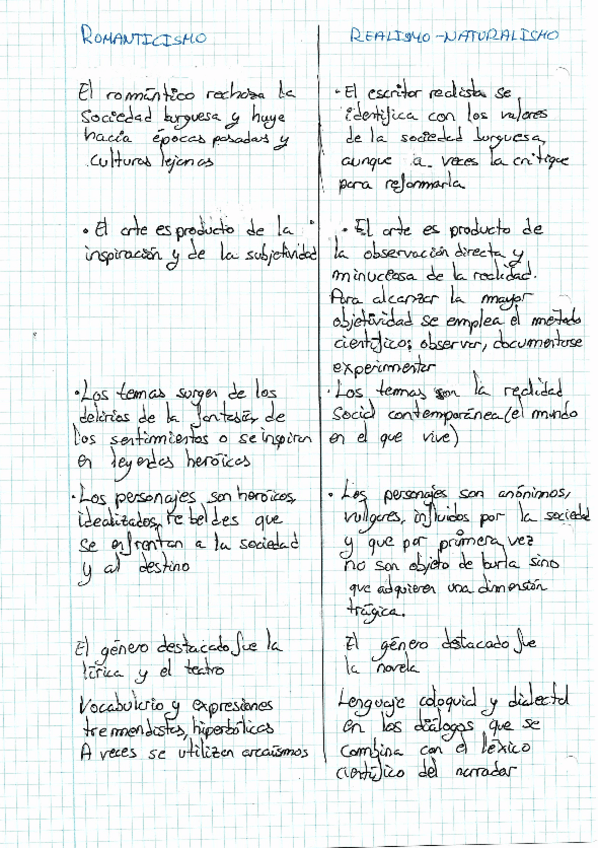 ROMANTICISMO
El romántico rechaza la
Sociedad burguesa y huye
hacia épocas pasadas y
culturas lejanas
• El arte es producto de la
inspiración y de la subjetividad
• Los temas surgen de los
delirios de la fantasía, de
los sentimientos o se inspiran
en leyendas heróicas
• Los personajes son heróicos,
idealizados, rebeldes que
se enfrentan a la sociedad
y al destino
El género destacado fue la
lírica y el teatro
Vocabulario y expresiones
tremendistas, hiperbólicas
A veces se utilizan arcaísmos
REALISMO-NATURALISMO
• El escritor realista se
identifica con los valores
de la sociedad burguesa,
aunque a veces la critique
para reformarla
• El arte es producto de
la observación directa y
minuciosa de la realidad.
Para alcanzar la mayor
objetividad se emplea el método
científico; observar, documentarse
experimentar
• Los temas son la realidad
Social contemporánea (el mundo
en el que vive)
• Los personajes son anónimos,
vulgares, influidos por la sociedad
y que por primera vez
no son objeto de burla sino
que adquieren una dimensión
trágica.
El género destacado fue
la novela
Lenguaje coloquial y dialectal
en los diálogos que se
combina con el léxico
científico del narrador